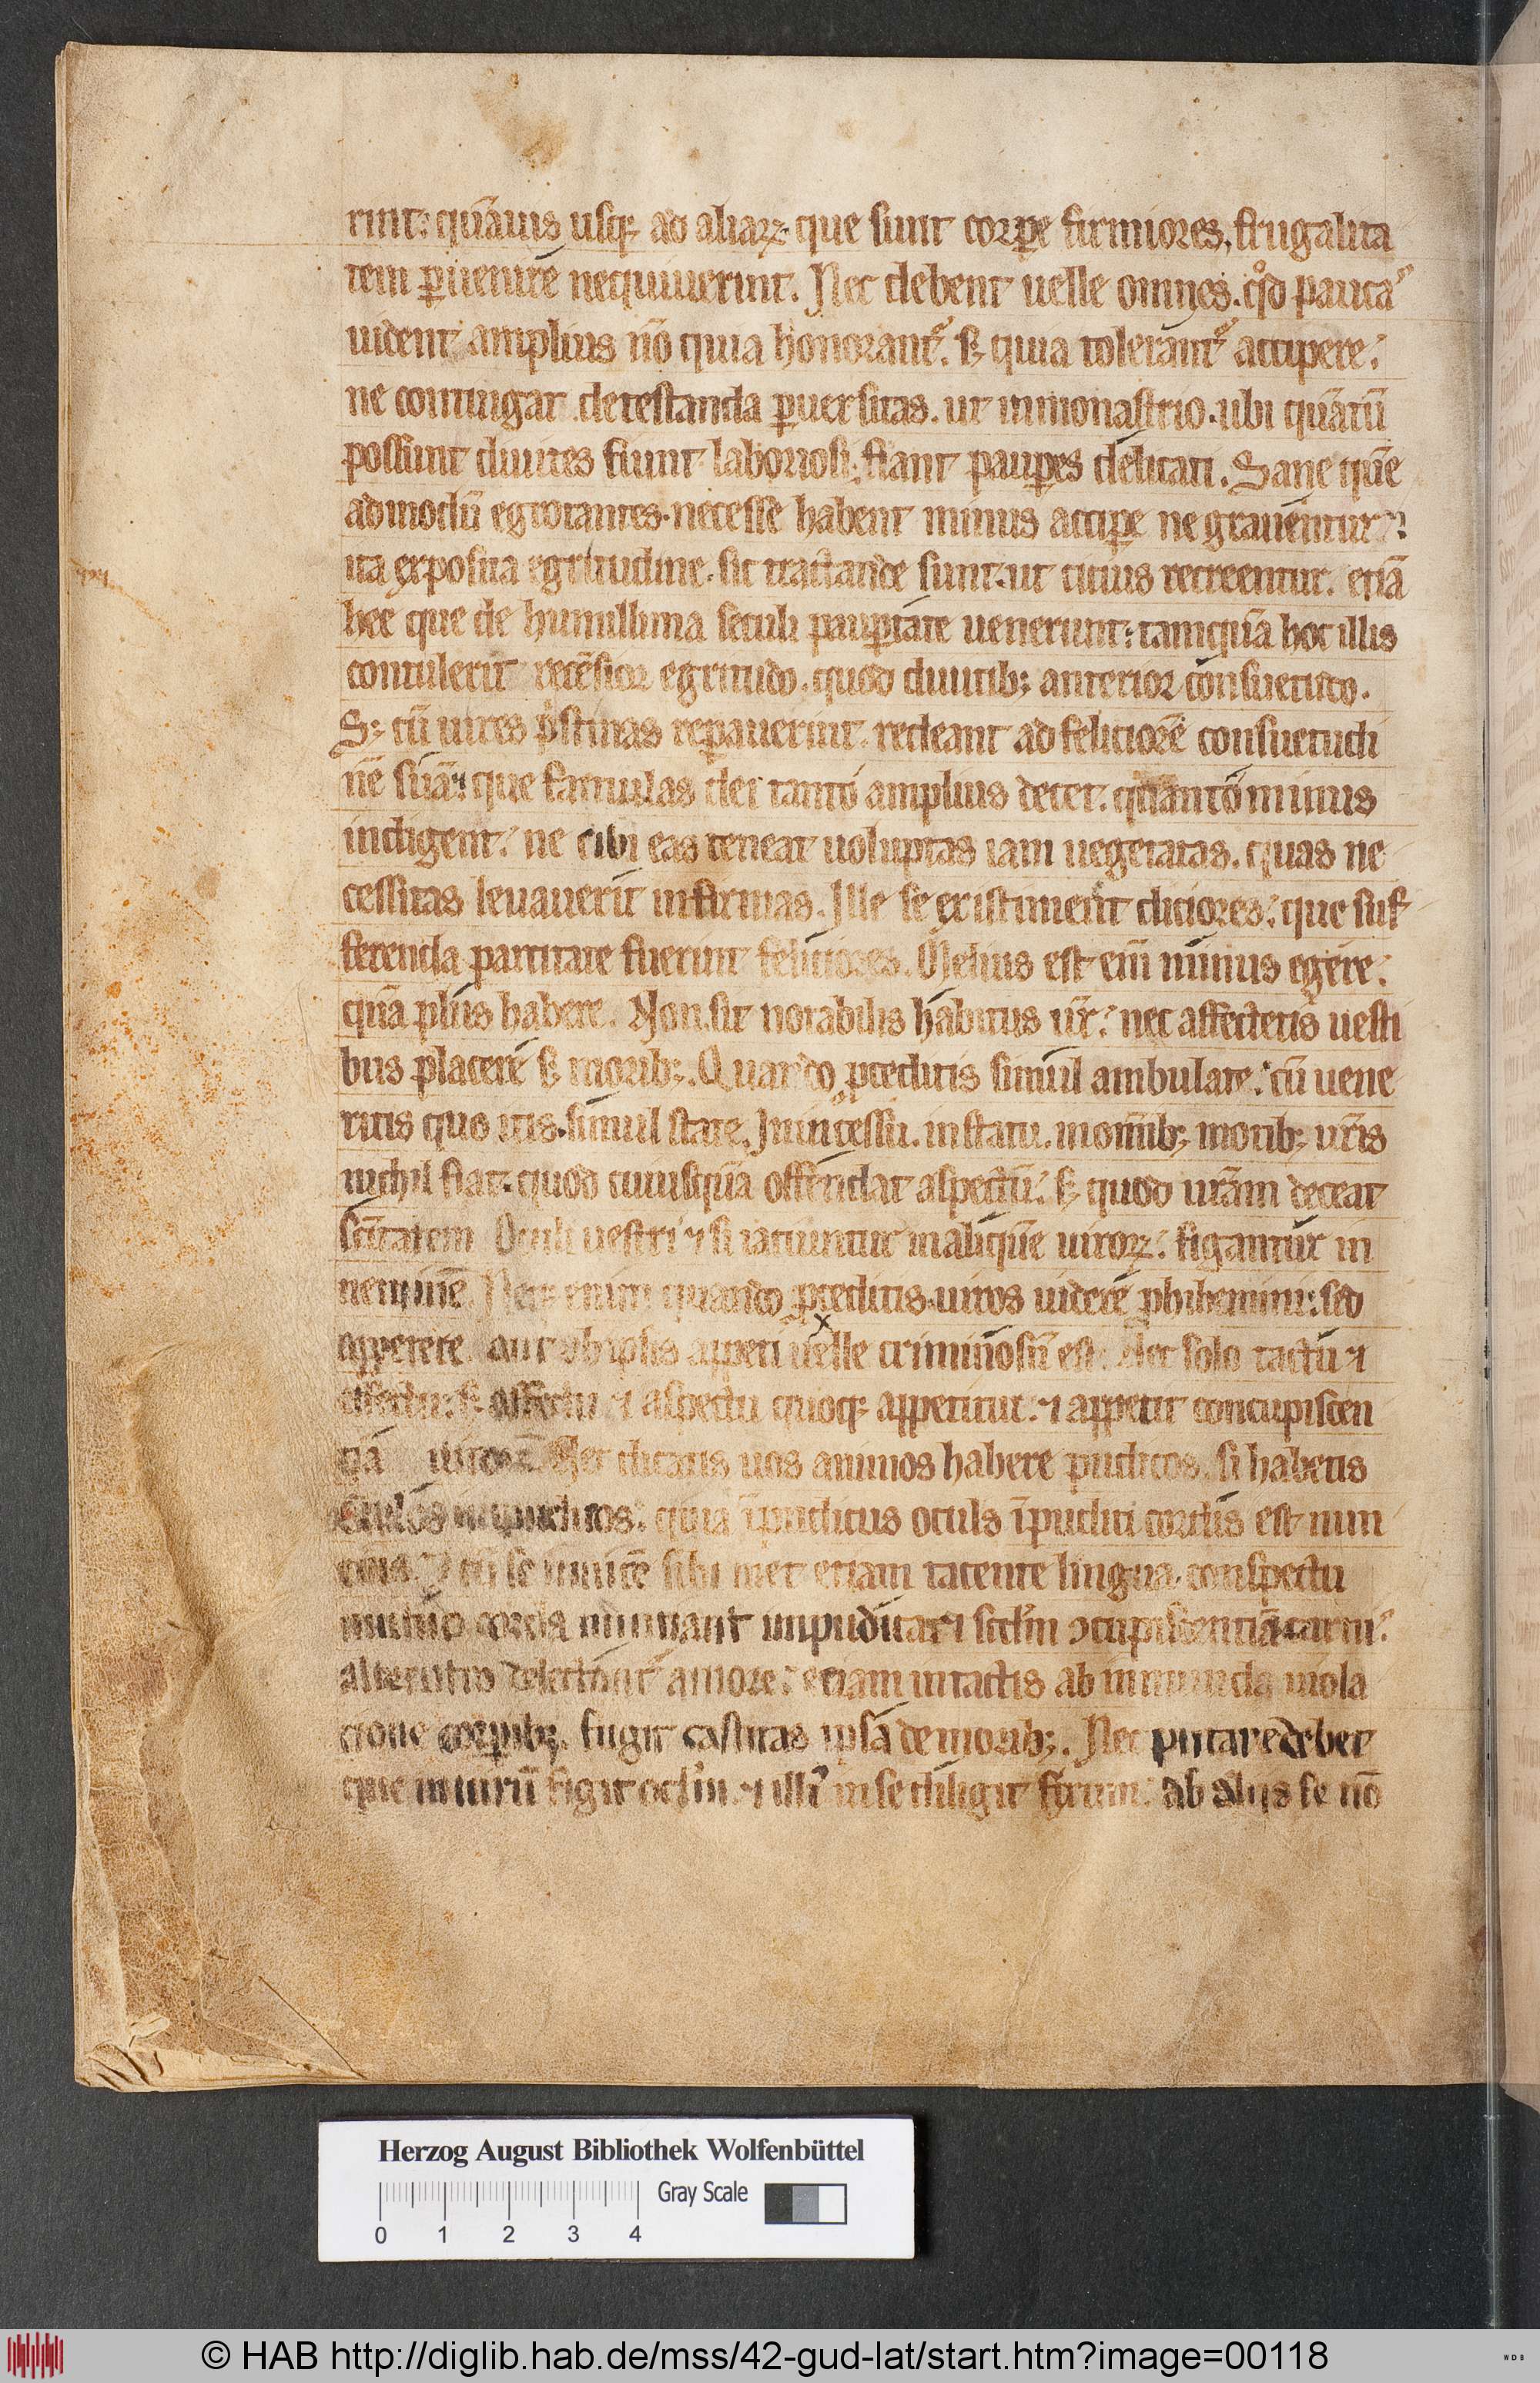 rint: quāuis usq; ad aliaꝝ que sunt corꝑe firmiores, frugalita
tem ꝑuenire nequiuerint. Nec debent uelle omnes. qͦd pauca
uident amplius nō quia honorant᷑. sꝫ quia tolerant᷑ accipere.
ne contingat detestanda ꝑuersitas. ut inmonastrio. ubi quātū
possunt diuites fiunt laboriosi: fiant pauꝑes delicati. Sane quē
admodū egrotantes. necesse habent minus acciꝑe ne grauentur
ita exposita egritudine. sic tractande sunt. ut citius recreentur. etiā
hee que de humillima seculi pauꝑtate uenerunt: tamquā hoc illis
contulerit recēsior egritudo. quod diuitibꝫ anterior consuetudo.
Sꝫ cū uires pͥstinas reꝑauerint. redeant ad feliciorē consuetudi
nē suā. que famulas dei tanto amplius decet. quanto minus
indigent. ne cibi eas teneat uoluptas iam uegetatas. quas ne
cessitas leuauerit infirmas. Ille se existiment diciores. que suf
ferenda parcitate fuerint feliciores. Melius est enī minus egere.
quā plus habere. Non sit notabilis habitus ur̄. nec affectetis uesti
bus placere sꝫ moribꝫ. Quando ꝓceditis simul ambulate. cū uene
ritis quo itis. simul state. Inincessu. instatu. inomībꝫ moribꝫ ur̄is
nichil fiat. quod cuiusquā offendat aspectū. sꝫ quod urām deceat
scītatem Oculi uestri ⁊ si iaciuntur inaliquē uiroꝝ. figantur in
neminē. Neqꝫ enim quando ꝓceditis. uiros uidere ꝓhibemini: sed
appetere. aut ab ipsis appeti uelle criminosū est. Nec solo tactu ⁊
affectu: sꝫ affectu ⁊ aspectu quoqꝫ appetitur. ⁊ appetit concupiscen
tiā uiroꝝ. Nec dicatis uos animos habere pudicos. si habetis
oculos inpudicos. quia īpudicus oculs īpudici cordis est nun
cius. ⁊ cū se inuicē sibi met etiam tacente lingua. conspectu
mutuo corda nunciant inpudica ⁊ scd̄m ↄcupiscentiā carni.
alterutro delectant᷑ amore. etiam intactis ab inmunda uiola
cione corꝑibꝫ. fugit castitas ipsa demoribꝫ. Nec putare debet
que inuirū figit oclm̄. ⁊ illiꝰ inse diligit fixum. ab aliis se nō
Herzog August Bibliothek Wolfenbüttel
Gray Scale
0 1 2 3 4
© HAB http://diglib.hab.de/mss/42-gud-lat/start.htm?image=00118
WDB